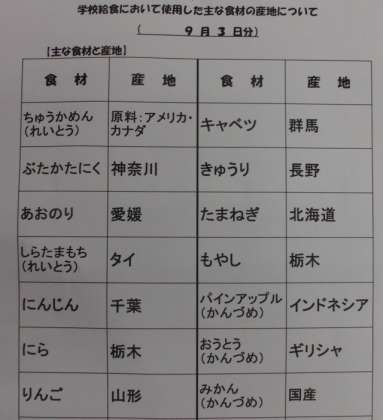 学校給食において使用した主な食材の産地について
( 9 月 3 日分)
[主な食材と産地]
食 材 産 地 食 材 産 地
ちゅうかめん
(れいとう) 原料:アメリカ・
カナダ キャベツ 群馬
ぶたかたにく 神奈川 きゅうり 長野
あおのり 愛媛 たまねぎ 北海道
しらたまもち
(れいとう) タイ もやし 栃木
にんじん 千葉 パインアップル
(かんづめ) インドネシア
にら 栃木 おうとう
(かんづめ) ギリシャ
りんご 山形 みかん
(かんづめ) 国産